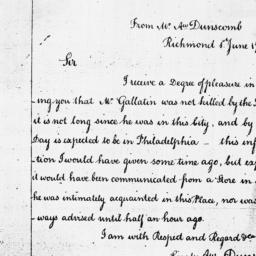 From Mr Am Dunscomb
Richmond 6 June 17
Sir
I receive a Degree of pleasure in
ing you that Mr Gallatin was not killed by the
it is not long since he was in this City, and by
Day is expected to be in Philadelphia - this inf
tion I would have given some time ago, but ex
it would have been communicated from a Store in
he was intimately acquainted in this Place, nor was
ways advised until half an hour ago.
I am with Respect and Regard &ca